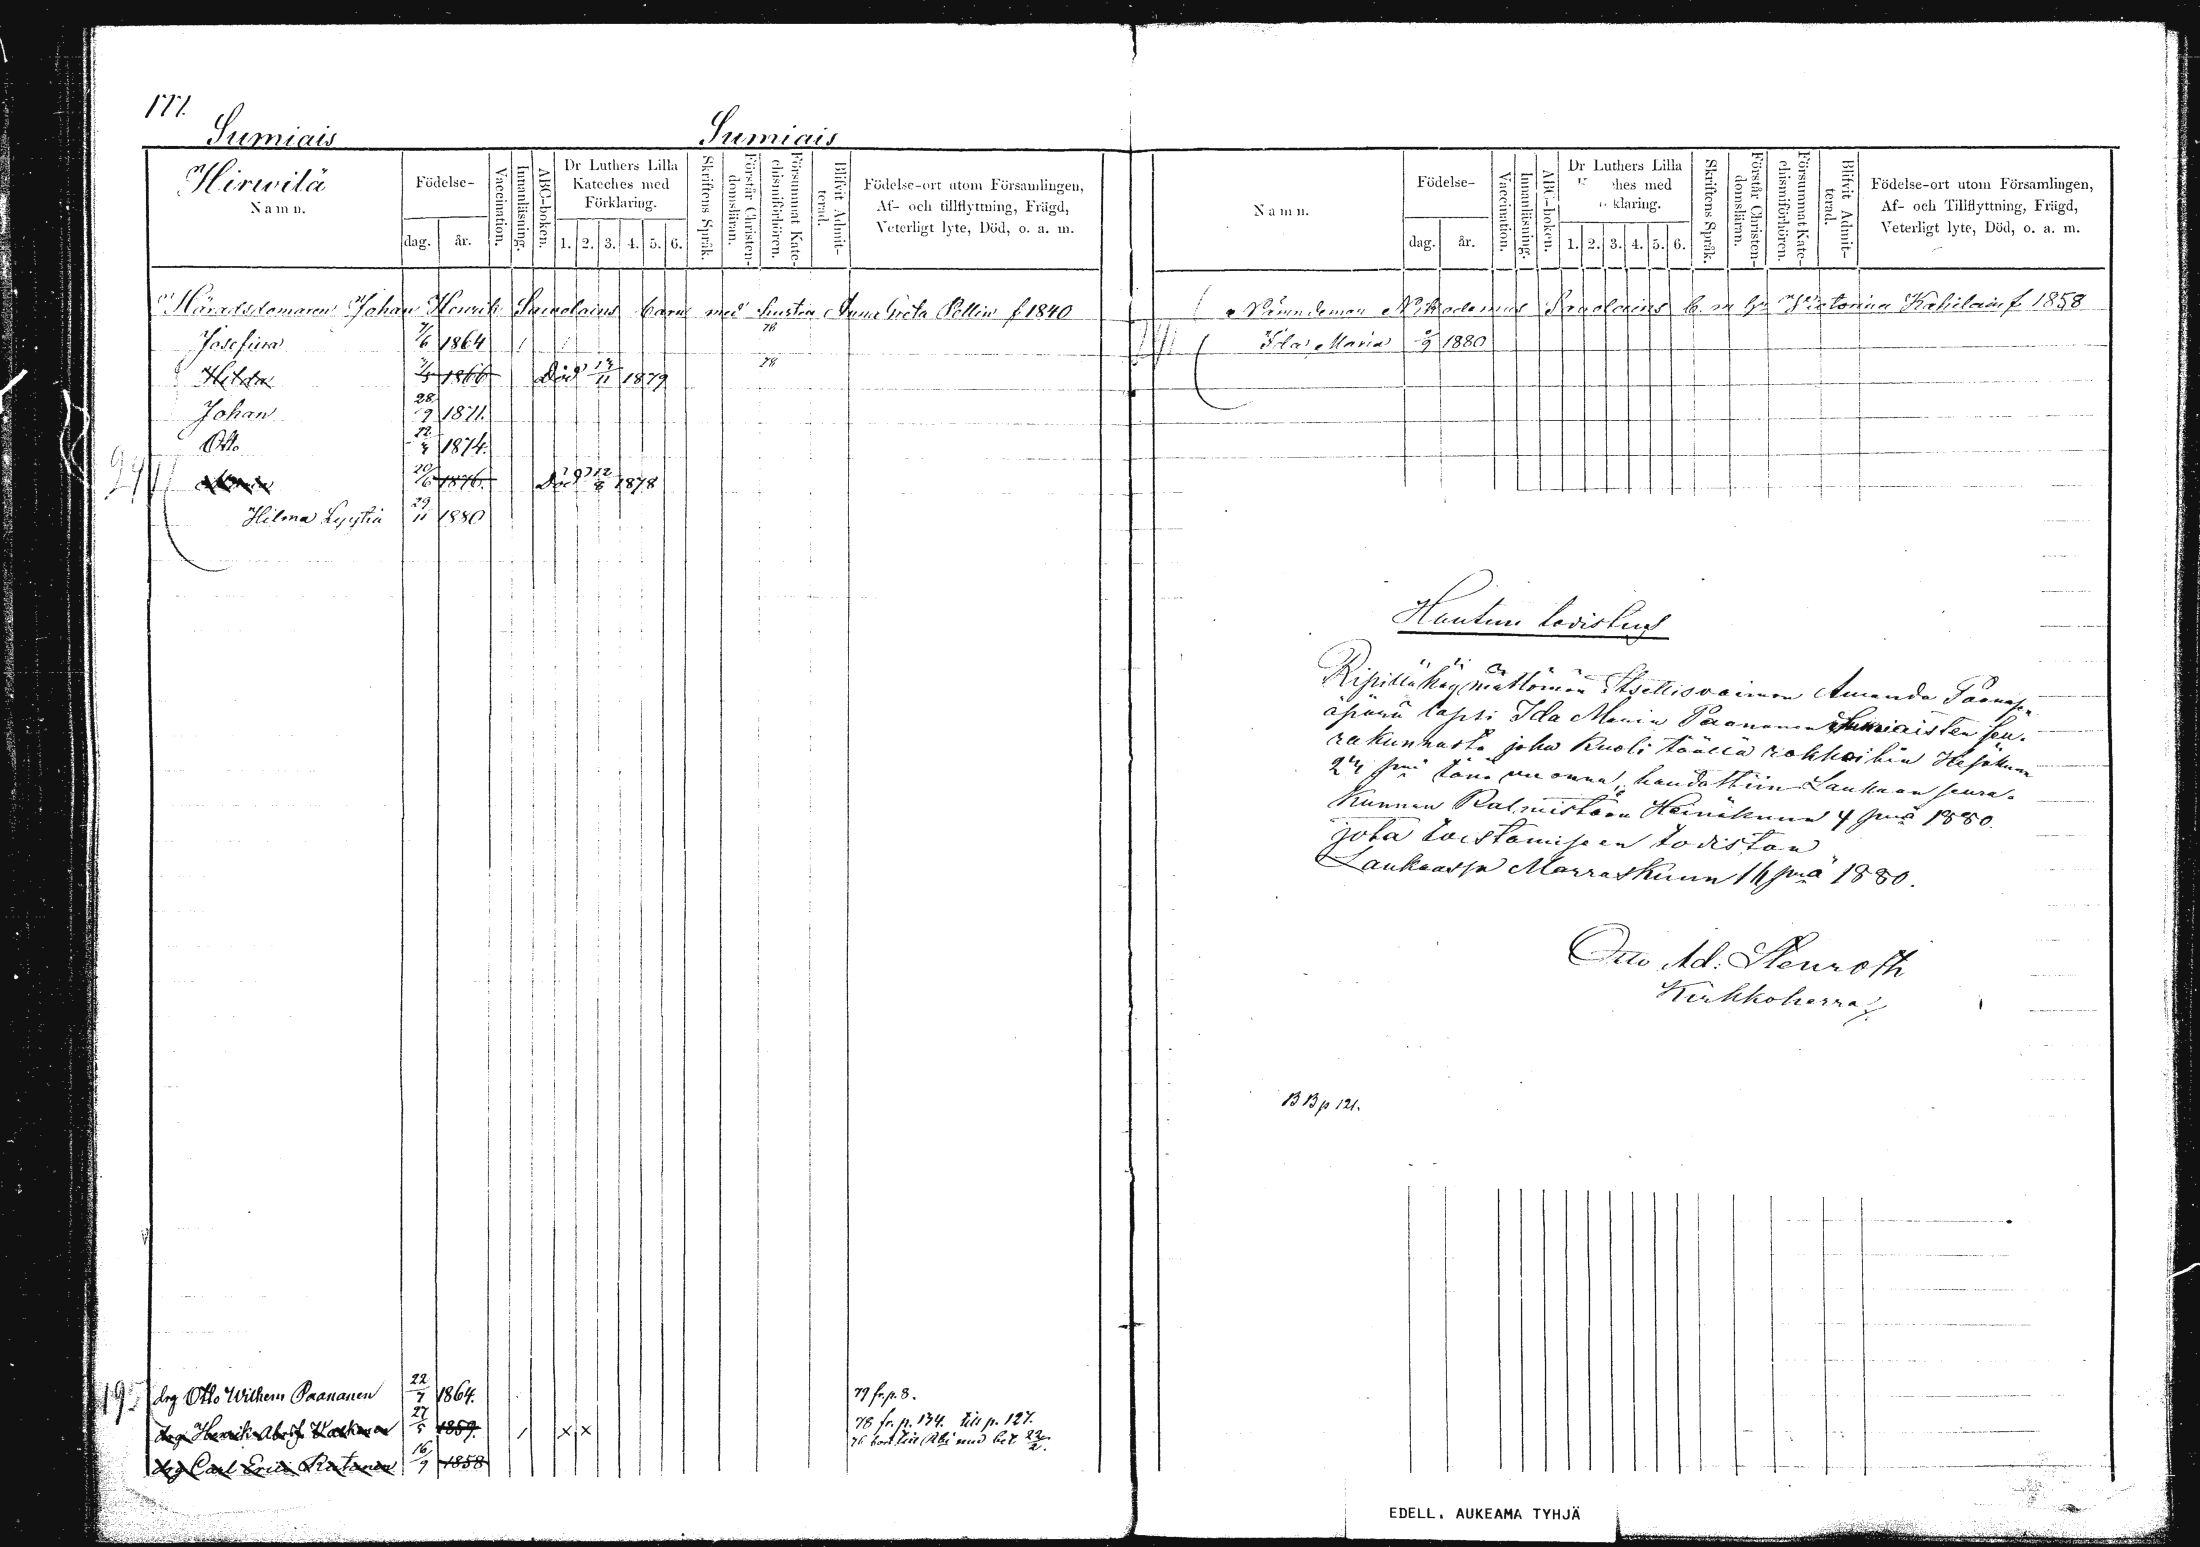 177.
Sumiais
Sumiais
Hirwilä
Namn.
Födelse-
dag. år.
Vaccination.
Innanläsning.
ABC-boken.
Dr Luthers Lilla
Kateches med
Förklaring.
1. 2. 3. 4. 5. 6.
Skriftens Språk.
Förstår Christen-
domsläran.
Försummat Kate-
chismiförhören.
Blifvit Admit-
terad.
Födelse-ort utom Församlingen,
Af- och tillflyttning, Frägd,
Veterligt lyte, Död, o. a. m.
Häradsdomaren Johan Henrik Savolains barn med hustru Anna Greta Pellin f 1840
Josefina 7/6 1864 / 78
Hilda 1866 Död 13/11 1879 78
Johan 28/9 1871.
Otto 1874.
20/6 1876. Död 12/8 1878
Hilma Lyytia 29/11 1880
195
drg Otto Wilhem Paananen 22/7 1864. 79 fr. p. 8.
drg Henrik 27/5 1859. / x x 78 fr. p. 134. till p. 127.
drg Carl Eric Rutanen 16/9 1858 76 med bet. 22/2.
Namn.
Födelse-
dag. år.
Vaccination.
Innanläsning.
ABC-boken.
Dr Luthers Lilla
ches med
klaring.
1. 2. 3. 4. 5. 6.
Skriftens Språk.
Förstår Christen-
domsläran.
Försummat Kate-
chismiförhören.
Blifvit Admit-
terad.
Födelse-ort utom Församlingen,
Af- och Tillflyttning, Frägd,
Veterligt lyte, Död, o. a. m.
Nämndeman Nikodemus Savolains b. m. h. Victorina Kahilain f. 1858
Ida Maria 1880
Hautuu todistus
Ripilläkäymättömän Itsellisvaimon Amanda Paanasen
äpärä lapsi Ida Maria Paananen Sumiaisten seu-
rakunnasta joka kuoli täällä rokkoihin Kesäkuun
27 pnä tänä vuonna, haudattiin Laukaan seura-
kunnan Kalmistoon Heinäkuun 4 pnä 1880.
jota toistamiseen todistan
Laukaassa Marraskuun 16 pnä 1880.
Otto Ad: Stenroth
Kirkkoherra
BB p 121.
EDELL. AUKEAMA TYHJÄ